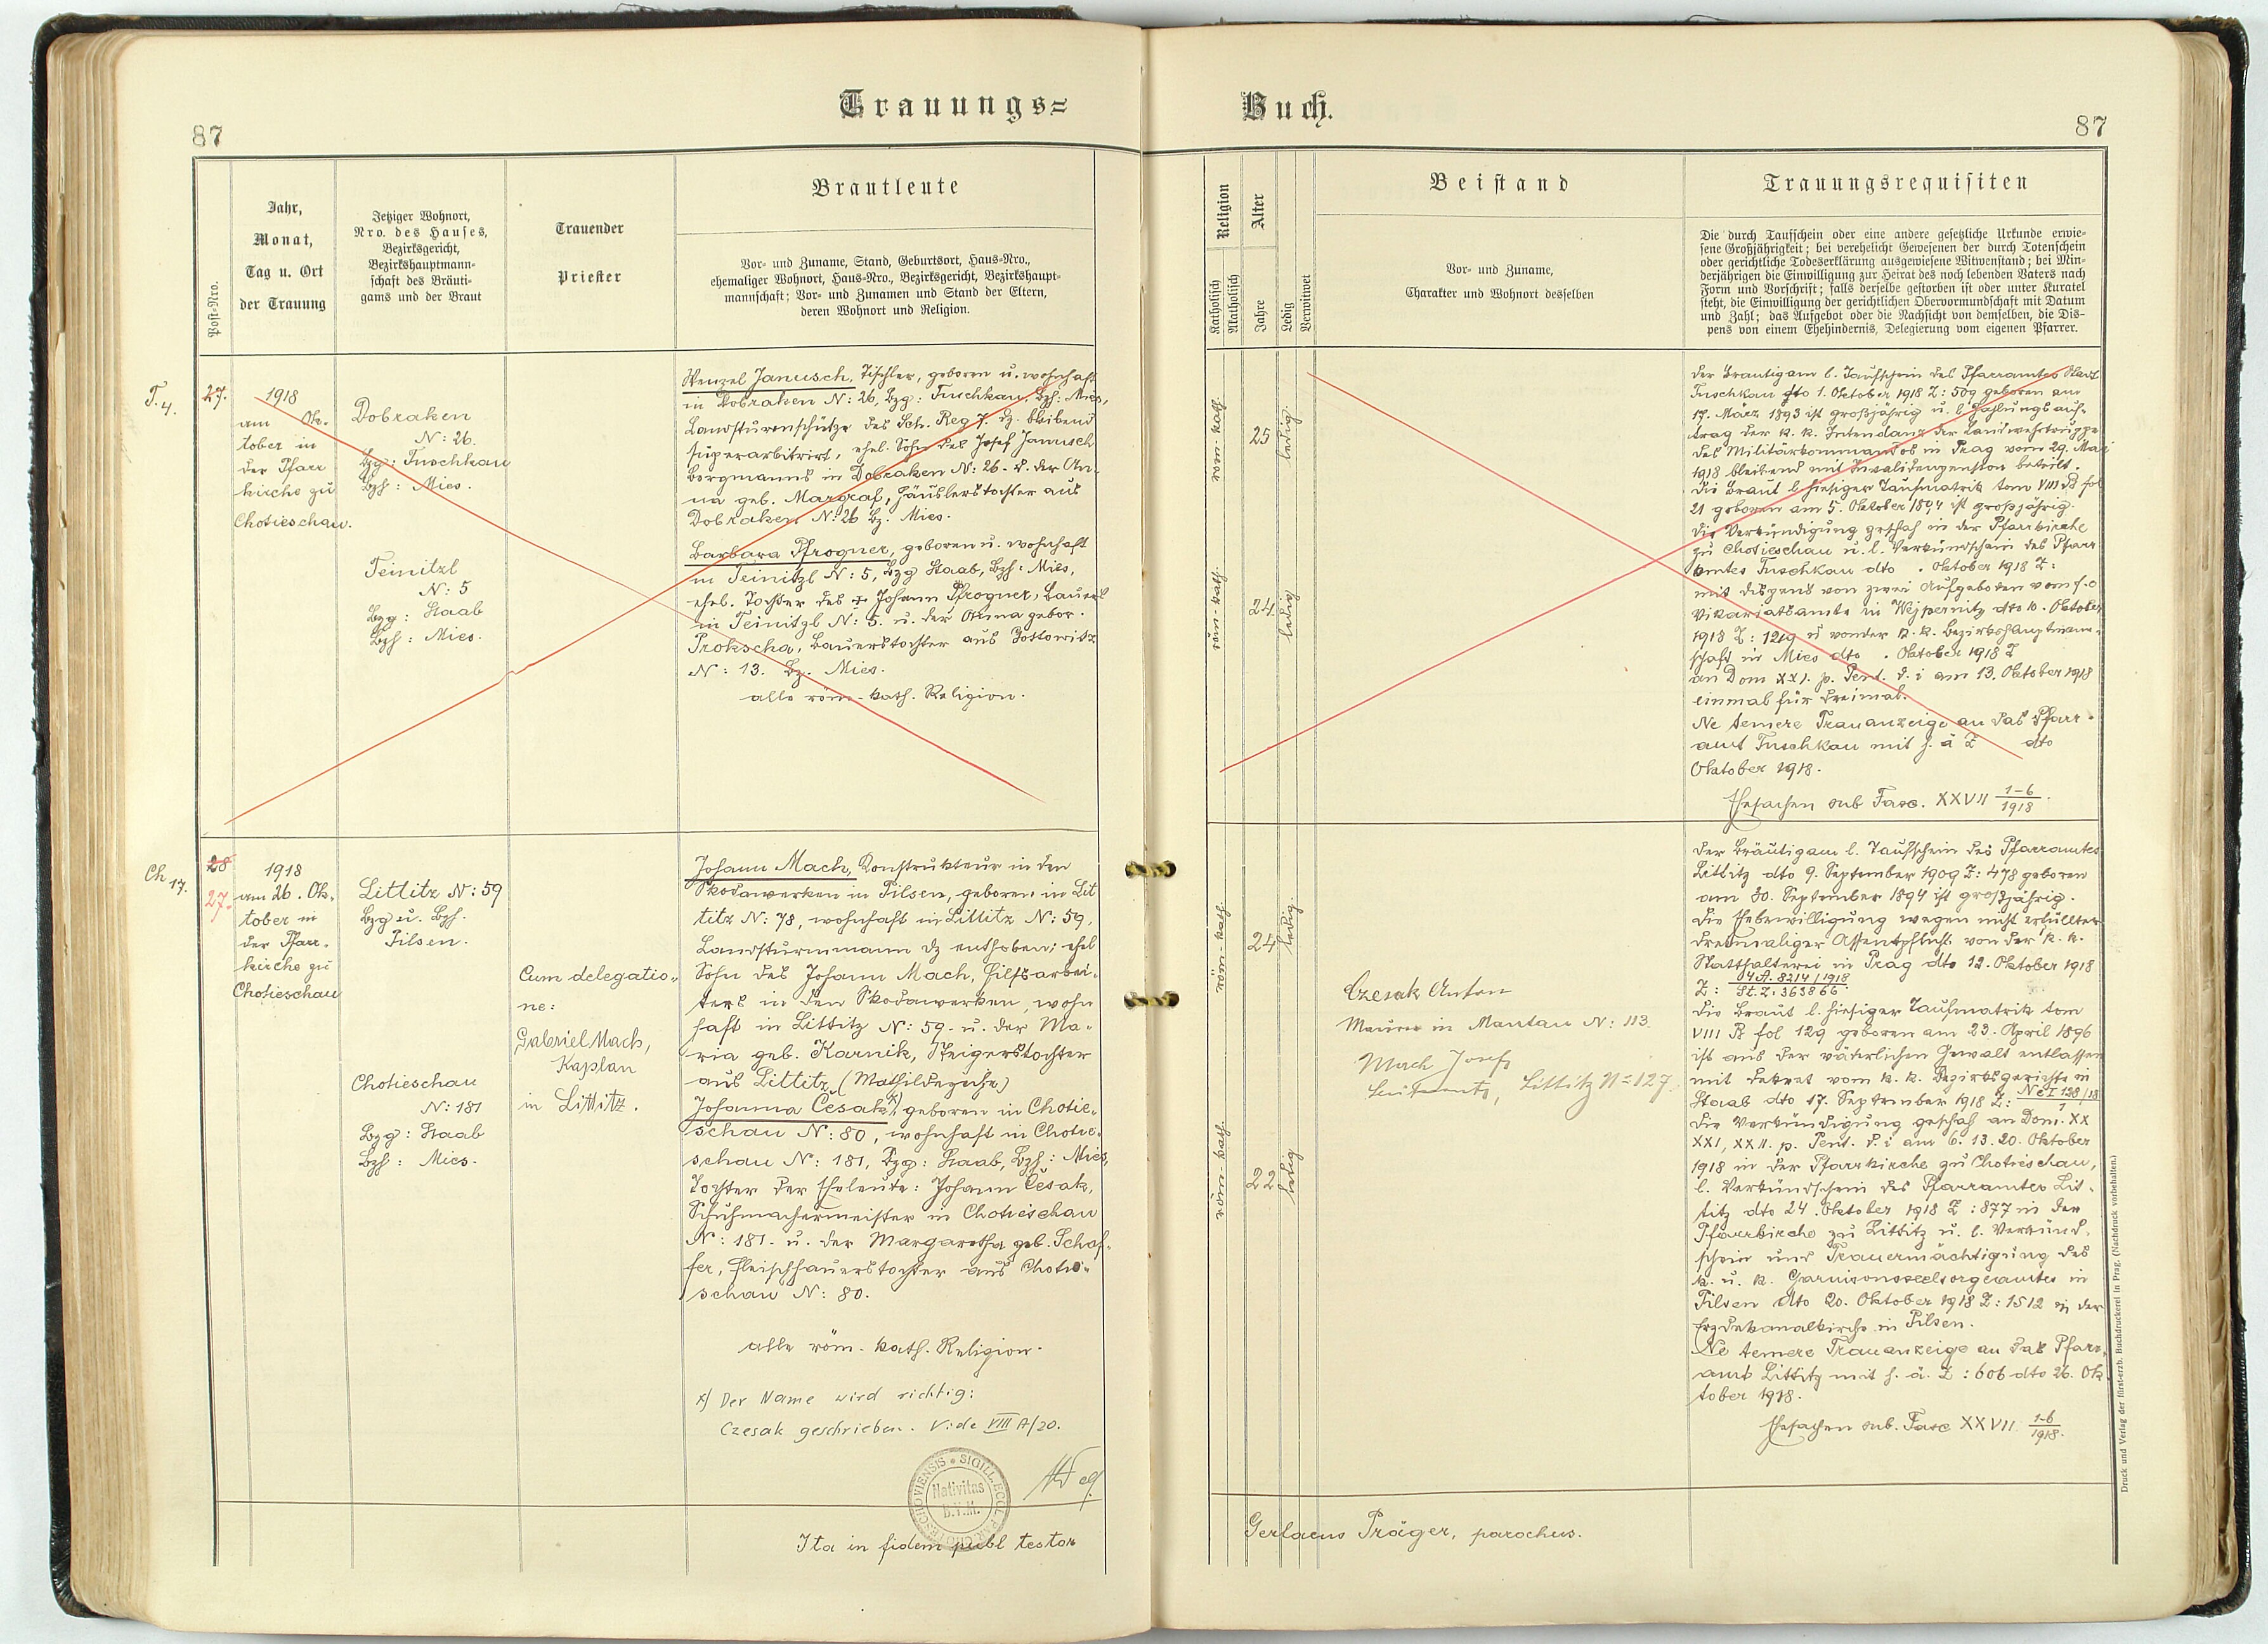 Trauungs=
Buch.
87
87
Post=Nro.
Jahr,
Monat,
Tag u. Ort
der Trauung
Jetziger Wohnort,
Nro. des Hauses,
Bezirksgericht,
Bezirkshauptmann=
schaft des Bräuti=
gams und der Braut
Trauender
Priester
Brautleute
Vor= und Zuname, Stand, Geburtsort, Haus=Nro.,
ehemaliger Wohnort, Haus=Nro., Bezirksgericht, Bezirkshaupt=
mannschaft; Vor= und Zunamen und Stand der Eltern,
deren Wohnort und Religion.
Religion
Katholisch
Akatholisch
Alter
Jahre
Ledig
Verwitwet
Beistand
Vor= und Zuname,
Charakter und Wohnort desselben
Trauungsrequisiten
Die durch Taufschein oder eine andere gesetzliche Urkunde erwie=
sene Großjährigkeit; bei verehelicht Gewesenen der durch Totenschein
oder gerichtliche Todeserklärung ausgewiesene Witwenstand; bei Min=
derjährigen die Einwilligung zur Heirat des noch lebenden Vaters nach
Form und Vorschrift; falls derselbe gestorben ist oder unter Kuratel
steht, die Einwilligung der gerichtlichen Obervormundschaft mit Datum
und Zahl; das Aufgebot oder die Nachsicht von demselben, die Dis=
pens von einem Ehehindernis, Delegierung vom eigenen Pfarrer.
T. 4.
27.
1918
am Ok-
tober in
der Pfarr
kirche zu
Chotieschau.
Dobraken
N: 26.
Bzg: Tuschkau
Bzh: Mies.
Teinitzl
N: 5
Bzg: Staab
Bzh: Mies.
Wenzel Janusch, Tischler, geboren u. wohnhaft
in Dobraken N: 26, Bzg: Tuschkau, Bzh: Mies,
Landsturmschütze des Sch. Reg 7. dz. bleibend
superarbitrirt, ehel. Sohn des Josef Janusch
Bergmanns in Dobraken N: 26. u. der An-
na geb. Margraf, Häuslerstochter aus
Dobraken N: 26 Bz. Mies.
Barbara Pfrogner, geboren u. wohnhaft
in Teinitzl N: 5, Bzg Staab, Bzh: Mies,
ehel. Tochter des + Johann Pfrogner, Bauers
in Teinitzl N: 5. u. der Anna gebor.
Prokscha, Bauerstochter aus
N: 13. Bz. Mies.
alle röm.-kath. Religion.
röm-kath.
25
ledig
röm-kath.
24
ledig
Der Bräutigam l. Taufschein des Pfarramtes Stadt
Tuschkau dto 1. Oktober 1918 Z: 509 geboren am
17. März 1893 ist großjährig u. l. Zahlungsauf-
trag der k. k. Intendanz der Landwehrtruppe
des Militärkommandos in Prag vom 29. Mai
1918 bleibend mit Invalidenpension beteilt.
Die Braut l. hiesiger Taufmatrik tom VIII B fol
21 geboren am 5. Oktober 1894 ist großjährig.
Die Verkündigung geschah in der Pfarrkirche
zu Chotieschau u. l. Verkündschein des Pfarr
amtes Tuschkau dto . Oktober 1918 Z:
mit Dispens von zwei Aufgeboten vom f. e
Vikariatsamte in Wejpernitz dto 10. Oktober
1918 Z: 1219 u von der k. k. Bezirkshauptmann-
schaft in Mies dto . Oktober 1918 Z
an Dom XXI. p. Pent. d. i am 13. Oktober 1918
einmal für dreimal.
Ne temere Trauanzeige an das Pfarr-
amt Tuschkau mit h. ä Z dto
Oktober 1918.
Ehesachen sub Fasc. XXVII 1-6/1918.
Ch 17.
28
27.
1918
am 26. Ok-
tober in
der Pfarr-
kirche zu
Chotieschau
Littitz N: 59
Bzg u. Bzh.
Pilsen.
Chotieschau
N: 181
Bzg: Staab
Bzh: Mies.
Cum delegatio-
ne:
Gabriel Mach,
Kaplan
in Littitz.
Johann Mach, Konstrukteur in den
Skodawerken in Pilsen, geboren in Lit
titz N: 78, wohnhaft in Littitz N: 59,
Landsturmmann dz enthoben; ehel
Sohn des Johann Mach, Hilfsarbei-
ters in den Skodawerken, wohn
haft in Littitz N: 59. u. der Ma-
ria geb. Karnik, Steigerstochter
aus Littitz (Mathildezeche)
Johanna Česak x), geboren in Chotie-
schau N: 80, wohnhaft in Chotie-
schau N: 181, Bzg: Staab, Bzh: Mies,
Tochter der Eheleute: Johann Česak,
Schuhmachermeister in Chotieschau
N: 181. u. der Margaretha geb. Schaf-
fer, Fleischhauerstochter aus Chotie-
schau N: 80.
alle röm.-kath. Religion.
x) Der Name wird richtig:
Czesak geschrieben. Vide VIII A/20.
SIGILL. ECCL. PAR. CHOTESCHOVIENSIS
Nativitas
B.V.M.
Ita in fidem publ testor
röm-kath.
24
ledig.
röm-kath.
22
ledig
Czesak Anton
Maurer in Mantau N: 113.
Mach Josef
Littitz N= 127
Der Bräutigam l. Taufschein des Pfarramtes
Littitz dto 9. September 1909 Z: 478 geboren
am 30. September 1894 ist großjährig.
Die Ehebewilligung wegen nicht erfüllter
dreimaliger Assentpflicht von der k. k.
Statthalterei in Prag dto 12. Oktober 1918
Z: 14 A. 8214/1918 / St. Z: 363866.
Die Braut l. hiesiger Taufmatrik tom
VIII B fol 129 geboren am 23. April 1896
ist aus der väterlichen Gewalt entlassen
mit Dekret vom k. k. Bezirksgerichte in
Staab dto 17. September 1918 Z: Nc I 128/18 / 1
Die Verkündigung geschah an Dom. XX
XXI, XXII. p. Pent. d. i am 6. 13. 20. Oktober
1918 in der Pfarrkirche zu Chotieschau,
l. Verkündschein des Pfarramtes Lit-
titz dto 24. Oktober 1918 Z: 877 in der
Pfarrkirche zu Littitz u. l. Verkünd-
schein und Trauermächtigung des
k. u. k. Garnisonsseelsorgeamtes in
Pilsen dto 20. Oktober 1918 Z: 1512 in der
Erzdekanalkirche in Pilsen.
Ne temere Trauanzeige an das Pfarr-
amt Littitz mit h. ä. Z: 606 dto 26. Ok
tober 1918.
Ehesachen sub. Fasc XXVII 1-6/1918.
Gerlacus Präger, parochus.
Druck und Verlag der fürst-erzb. Buchdruckerei in Prag. (Nachdruck vorbehalten.)